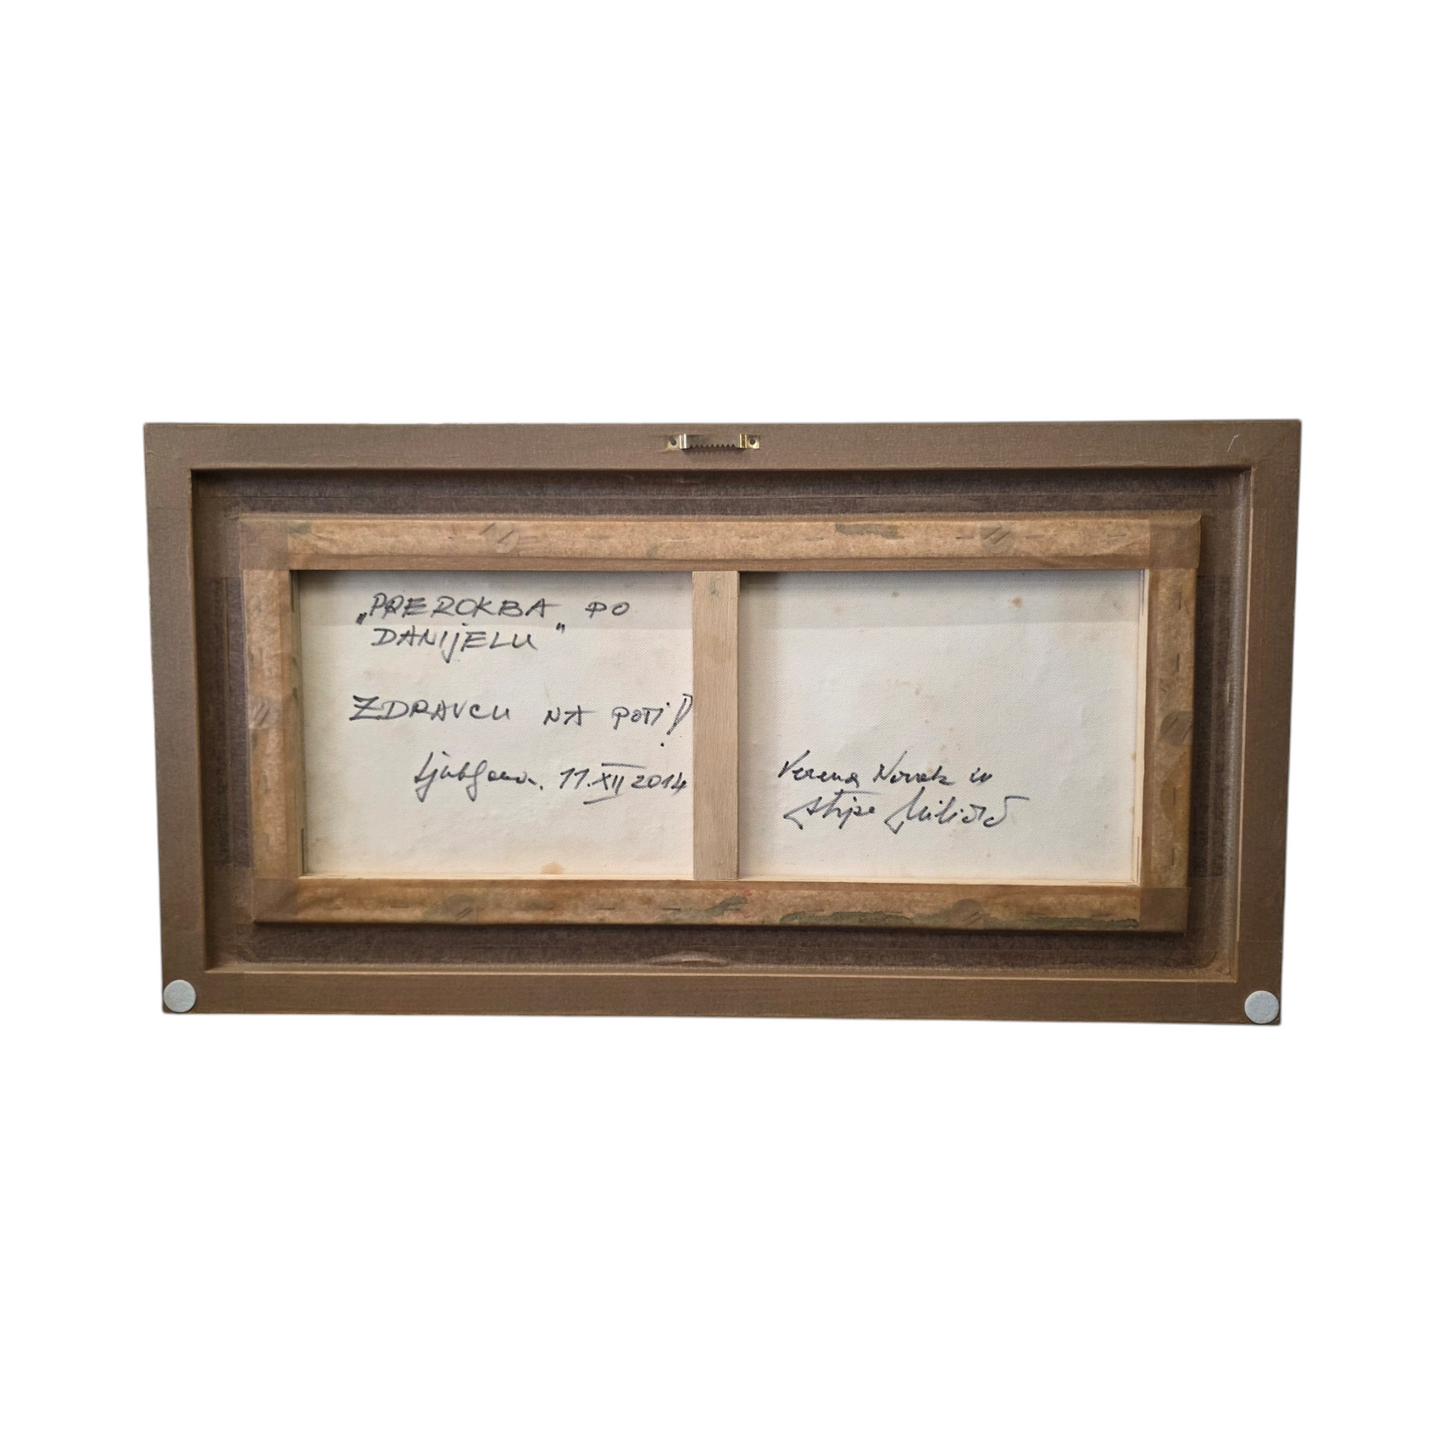 „PREROKBA PO
DANIJELU"
ZDRAVCU NA POTI!
Ljubljana, 11.XII 2014
Verena Novak in
Stipe Miličić